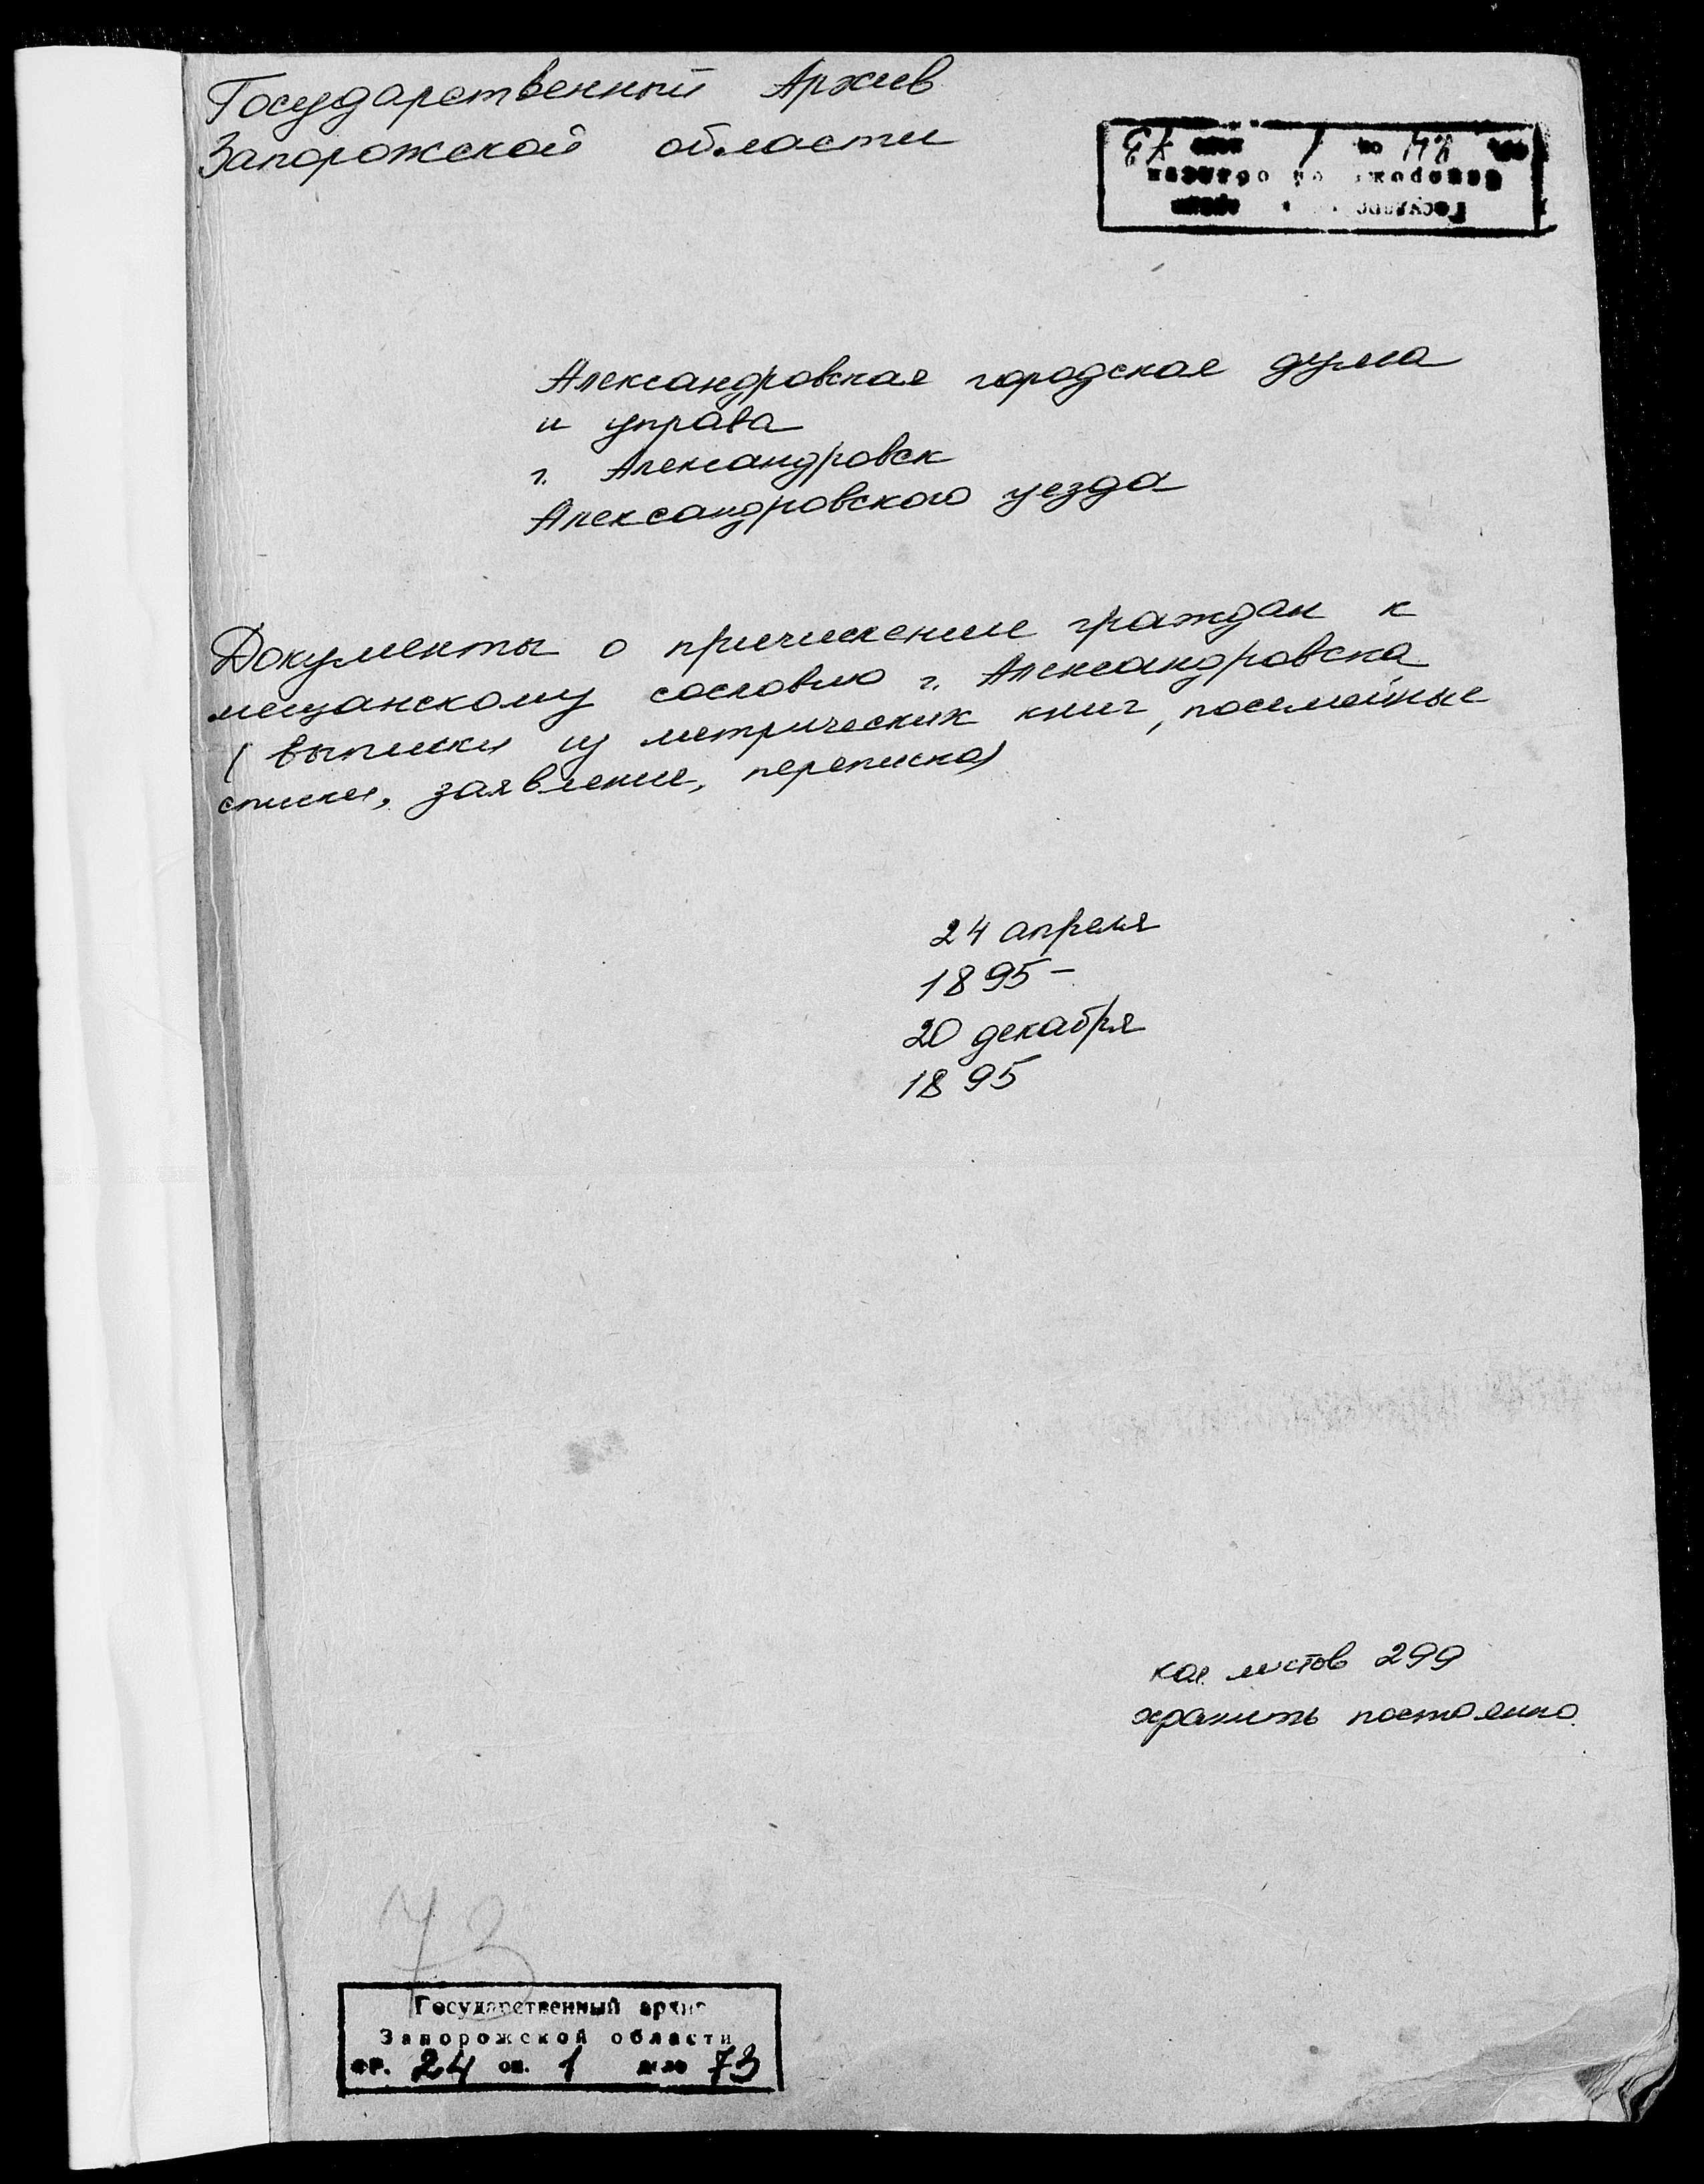 Государственный Архив
Запорожской области
Александровская городская дума
и управа
г. Александровск
Александровского уезда
Документы о причислении граждан к
мещанскому сословию г. Александровска
(выписки из метрических книг, посемейные
списки, заявления, переписка)
24 апреля
1895 –
20 декабря
1895
кол. листов 299
хранить постоянно.
73
Государственный архив
Запорожской области
ФР. 24 оп. 1 дело 73